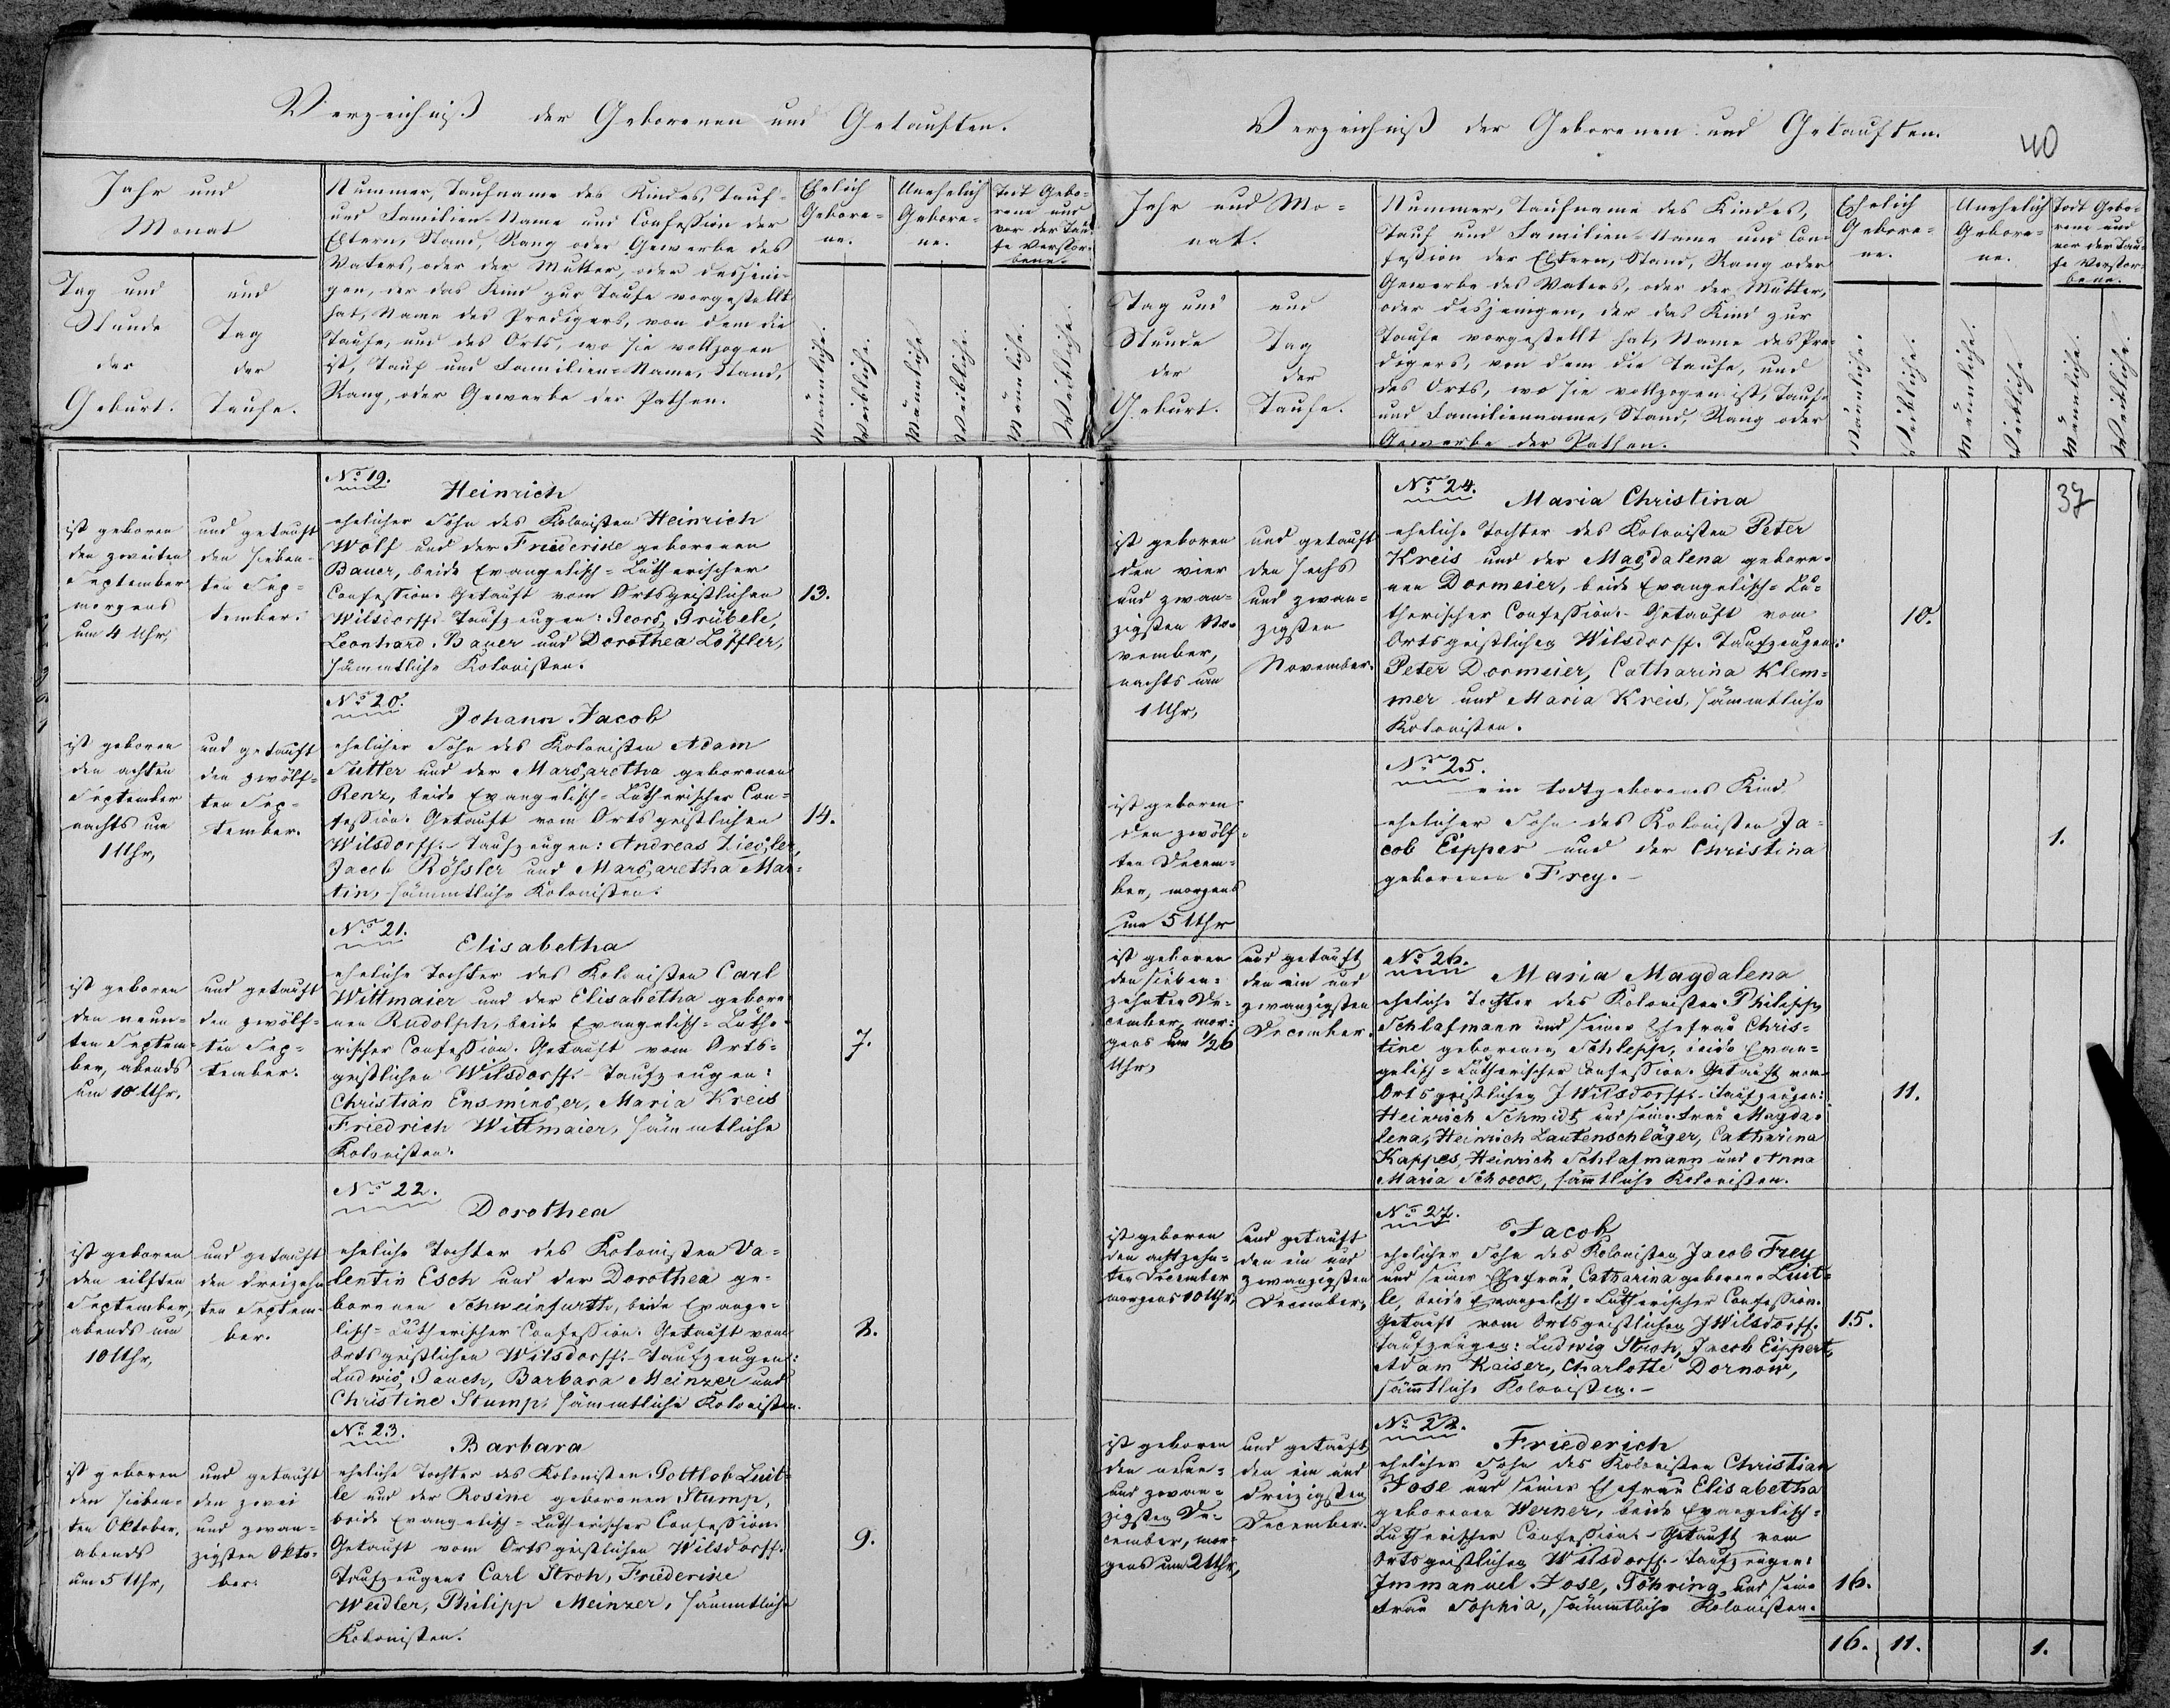 Verzeichniß der Geborenen und Getauften.
Jahr und
Monat
Tag und
Stunde
der
Geburt.
und
Tag
der
Taufe.
Nummer, Taufname des Kindes, Tauf-
und Familien-Name und Confession der
Eltern, Stand, Rang oder Gewerbe des
Vaters, oder der Mutter, oder desjeni-
gen, der das Kind zur Taufe vorgestellt
hat, Name des Predigers, von dem die
Taufe, und des Orts, wo sie vollzogen
ist, Tauf und Familien-Name, Stand,
Rang, oder Gewerbe der Pathen.
Ehelich
Gebore-
ne.
Unehelich
Gebore-
ne.
Todt Gebo-
rene und
vor der Tau-
fe Verstor-
bene.
Männliche.
Weibliche.
Männliche
Weibliche.
Männliche.
Weibliche.
ist geboren
den zweiten
September
morgens
um 4 Uhr,
und getauft
den sieben-
ten Sep-
tember.
No 19.
Heinrich
ehelicher Sohn des Kolonisten Heinrich
Wolf und der Friederike geborenen
Bauer, beide Evangelisch-Lutherischer
Confession. Getauft vom Ortsgeistlichen
Wilsdorff. Taufzeugen: Georg Grübele,
Leonhard Bauer und Dorothea Löffler,
sämmtliche Kolonisten.
13.
ist geboren
den achten
September
nachts um
1 Uhr,
und getauft
den zwölf-
ten Sep-
tember.
No 20.
Johann Jacob
ehelicher Sohn des Kolonisten Adam
Sutter und der Margaretha geborenen
Renz, beide Evangelisch-Lutherischer Con-
fession. Getauft vom Ortsgeistlichen
Wilsdorff.- Taufzeugen: Andreas Ziegler,
Jacob Rößler und Margaretha Mar-
tin, sämmtliche Kolonisten.
14.
ist geboren
den neun-
ten Septem-
ber, abends
um 10 Uhr,
und getauft
den zwölf-
ten Sep-
tember.
No 21.
Elisabetha
eheliche Tochter des Kolonisten Carl
Wittmaier und der Elisabetha gebore-
nen Rudolph, beide Evangelisch-Luthe-
rischer Confession. Getauft vom Orts-
geistlichen Wilsdorff.- Taufzeugen:
Christian Ensminger, Maria Kreis
Friedrich Wittmaier, sämmtliche
Kolonisten.
7.
ist geboren
den eilften
September,
abends um
10 Uhr,
und getauft
den dreizehn-
ten Septem-
ber.
No 22.
Dorothea
eheliche Tochter des Kolonisten Va-
lentin Esch und der Dorothea ge-
borenen Schweinfurth, beide Evange-
lisch-Lutherischer Confession. Getauft vom
Ortsgeistlichen Wilsdorff.- Taufzeugen:
Ludwig Jauch, Barbara Meinzer und
Christine Stump, sämmtliche Kolonisten.
8.
ist geboren
den sieben-
ten Oktober,
abends
um 5 Uhr,
und getauft
den zwei
und zwan-
zigsten Okto-
ber.
No 23.
Barbara
eheliche Tochter des Kolonisten Gottlob Luit-
le und der Rosine geborenen Stump,
beide Evangelisch-Lutherischer Confession.
Getauft vom Ortsgeistlichen Wilsdorff.
Taufzeugen: Carl Stroh, Friederike
Weidler, Philipp Meinzer, sämmtliche
Kolonisten.
9.
Verzeichniß der Geborenen und Getauften.
40
Jahr und Mo-
nat.
Tag und
Stunde
der
Geburt.
und
Tag
der
Taufe.
Nummer, Taufname des Kindes,
Tauf und Familien-Name und Con-
fession der Eltern, Stand, Rang oder
Gewerbe des Vaters, oder der Mutter,
oder desjenigen, der das Kind zur
Taufe vorgestellt hat, Name des Pre-
digers, von dem die Taufe, und
des Orts, wo sie vollzogen ist, Tauf-
und Familienname, Stand, Rang oder
Gewerbe der Pathen.
Ehelich
Gebore-
ne.
Unehelich
Gebore-
ne.
Todt Gebo-
rene und
vor der Tau-
fe Verstor-
bene.
Männliche.
Weibliche.
Männliche.
Weibliche
Männliche.
Weibliche.
37
ist geboren
den vier
und zwan-
zigsten No-
vember,
nachts um
1 Uhr,
und getauft
den sechs
und zwan-
zigsten
November.
No 24.
Maria Christina
eheliche Tochter des Kolonisten Peter
Kreis und der Magdalena gebore-
nen Dormeier, beide Evangelisch-Lu-
therischer Confession.- Getauft vom
Ortsgeistlichen Wilsdorff. Taufzeugen:
Peter Dormeier, Catharina Klem-
mer und Maria Kreis, sämmtliche
Kolonisten.
10.
ist geboren
den zwölf-
ten Decem-
ber, morgens
um 5 Uhr
No 25.
ein todtgeborenes Kind
ehelicher Sohn des Kolonisten Ja-
cob Eipper und der Christina
geborenen Frey.-
1.
ist geboren
den sieben-
zehnten De-
cember, mor-
gens um 1/2 6
Uhr,
und getauft
den ein und
zwanzigsten
December.
No 26.
Maria Magdalena
eheliche Tochter des Kolonisten Philipp
Schlafmann und seiner Ehefrau Chris-
tine geborenen Schlepp, beide Evan-
gelisch-Lutherischer Confession. Getauft vom
Ortsgeistlichen J Wilsdorff.- Taufzeugen:
Heinrich Schmidt und seine Frau Magda-
lena, Heinrich Lautenschläger, Catharina
Kappes, Heinrich Schlafmann und Anna
Maria Schoeck, sämtliche Kolonisten.
11.
ist geboren
den achtzehn-
ten December
morgens 10 Uhr,
und getauft
den ein und
zwanzigsten
December,
No 27.
Jacob
ehelicher Sohn des Kolonisten Jacob Frey
und seiner Ehefrau Catharina geborene Luit-
le, beide Evangelisch-Lutherischer Confession.
Getauft vom Ortsgeistlichen J Wilsdorff.
Taufzeugen: Ludwig Stroh, Jacob Eippert,
Adam Kaiser, Charlotte Dornow,
sämtliche Kolonisten.-
15.
ist geboren
den neun-
und zwan-
zigsten De-
cember, mor-
gens um 2 Uhr,
und getauft
den ein und
dreizigsten
December.
No 28.
Friederich
ehelicher Sohn des Kolonisten Christian
Jose und seiner Ehefrau Elisabetha
geborenen Werner, beide Evangelisch-
Lutherischer Confession.- Getauft vom
Ortsgeistlichen Wilsdorff.- Taufzeugen:
Immanuel Jose, Göhring und seine
Frau Sophia, sämmtliche Kolonisten.
16.
16. 11. 1.